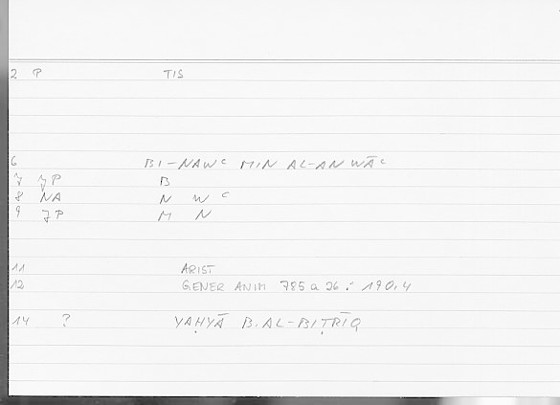 2 P TIS
6 BI-NAWᶜ MIN AL-ANWĀᶜ
7 JP B
8 NA N W ᶜ
9 JP M N
11 ARIST
12 GENER ANIM 785 a 26 : 190,4
14 ? YAḤYĀ B. AL-BIṬRĪQ